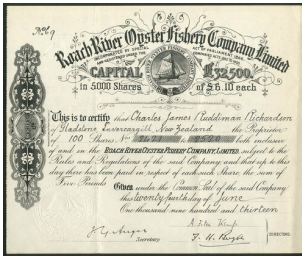 Roach River Oyster Fishery Company, Limited
INCORPORATED BY SPECIAL ACT OF PARLIAMENT, 1866.
CAPITAL £32,500,
in 5000 Shares of £6.10 each
This is to certify that Charles James Ruddiman Richardson
of Gladstone Invercargill New Zealand the Proprietor
of 100 Shares both inclusive
and in the ROACH RIVER OYSTER FISHERY COMPANY, LIMITED subject to the
Rules and Regulations of the said Company and that up to this
day there has been paid in respect of each such Share, the sum of
Five Pounds Given under the Common Seal of the said Company
this twenty fourth day of June
One thousand nine hundred and thirteen
Secretary
DIRECTORS.